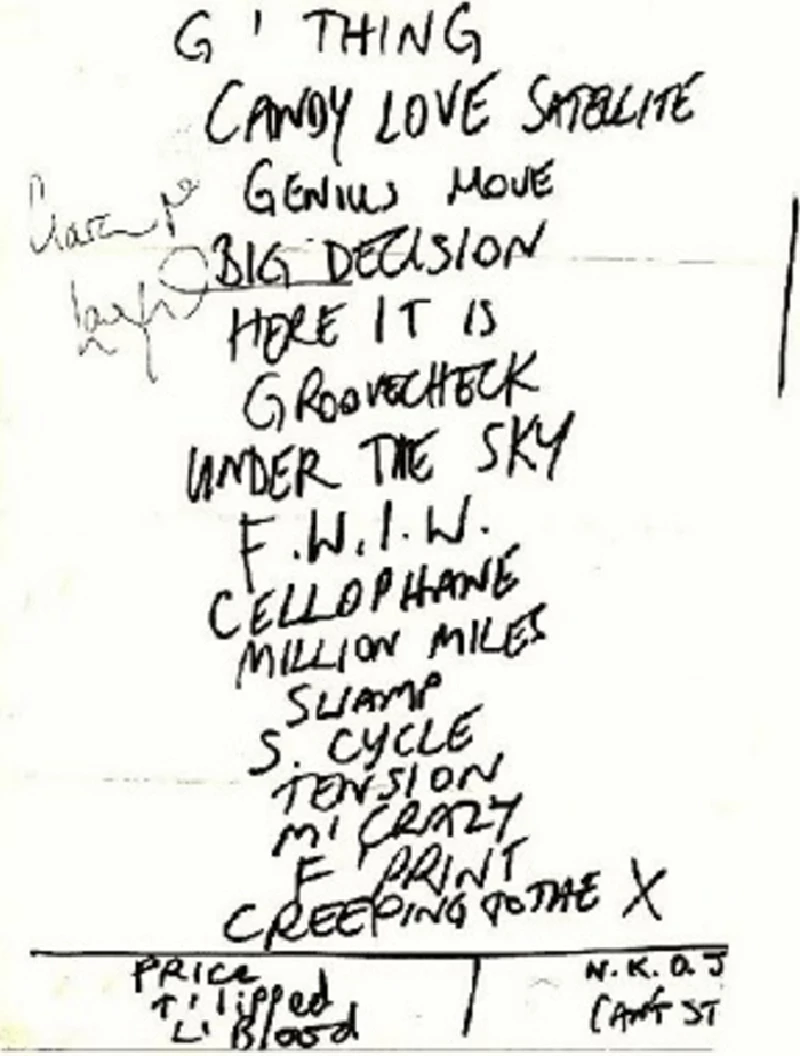 G' THING
CANDY LOVE SATELLITE
GENIUS MOVE
BIG DECISION
HERE IT IS
GROOVECHECK
UNDER THE SKY
F.W.I.W.
CELLOPHANE
MILLION MILES
SWAMP
S. CYCLE
TENSION
M' CRAZY
F' PRINT
CREEPING TO THE X
PRICE
T' lipped
L' Blood
N.K.O.J
CAN'T ST